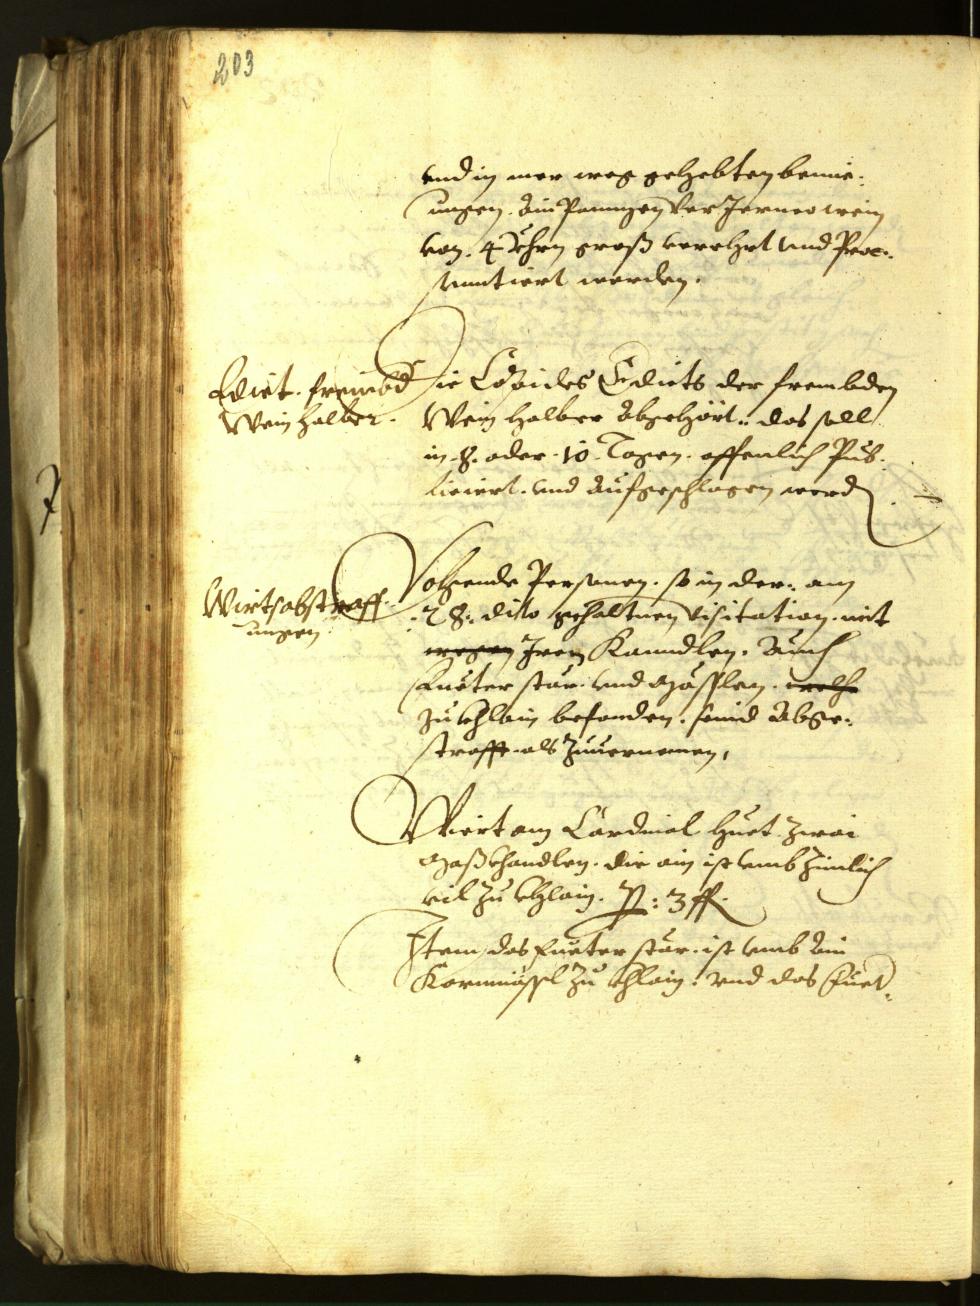 203
und in mer weg gehebten bemie-
ungen. ain Panngen Vernerwein
von. 4 Yhrn groß verehrt und Prae-
sentiert werden.
Edict. frembd
Wein halber.
Die Copi des Edicts der frembden
Wein halber abgehört: das soll
in .8. oder .10. Tagen. offenlich Pub-
liciert. und aufgeschlagen werd
Wirtsabstraff-
ungen
Volgende Personen. so in der. am
.28. dito gehaltnen Visitation. mit
wegen Iren Kanndlen. Auch
Fueter stär. und Mässlen. welche
zu khlain befonden. seind abge-
strafft. als zuvernemen,
Wiert am Cardinal Huet. zwai
Maßkhandlen. die ain ist umb zimlich
vil zu khlain. P: 3 fl.
Item das Fueter stär. ist umb ain
Kornmässl zu khlain: und das Fuet-